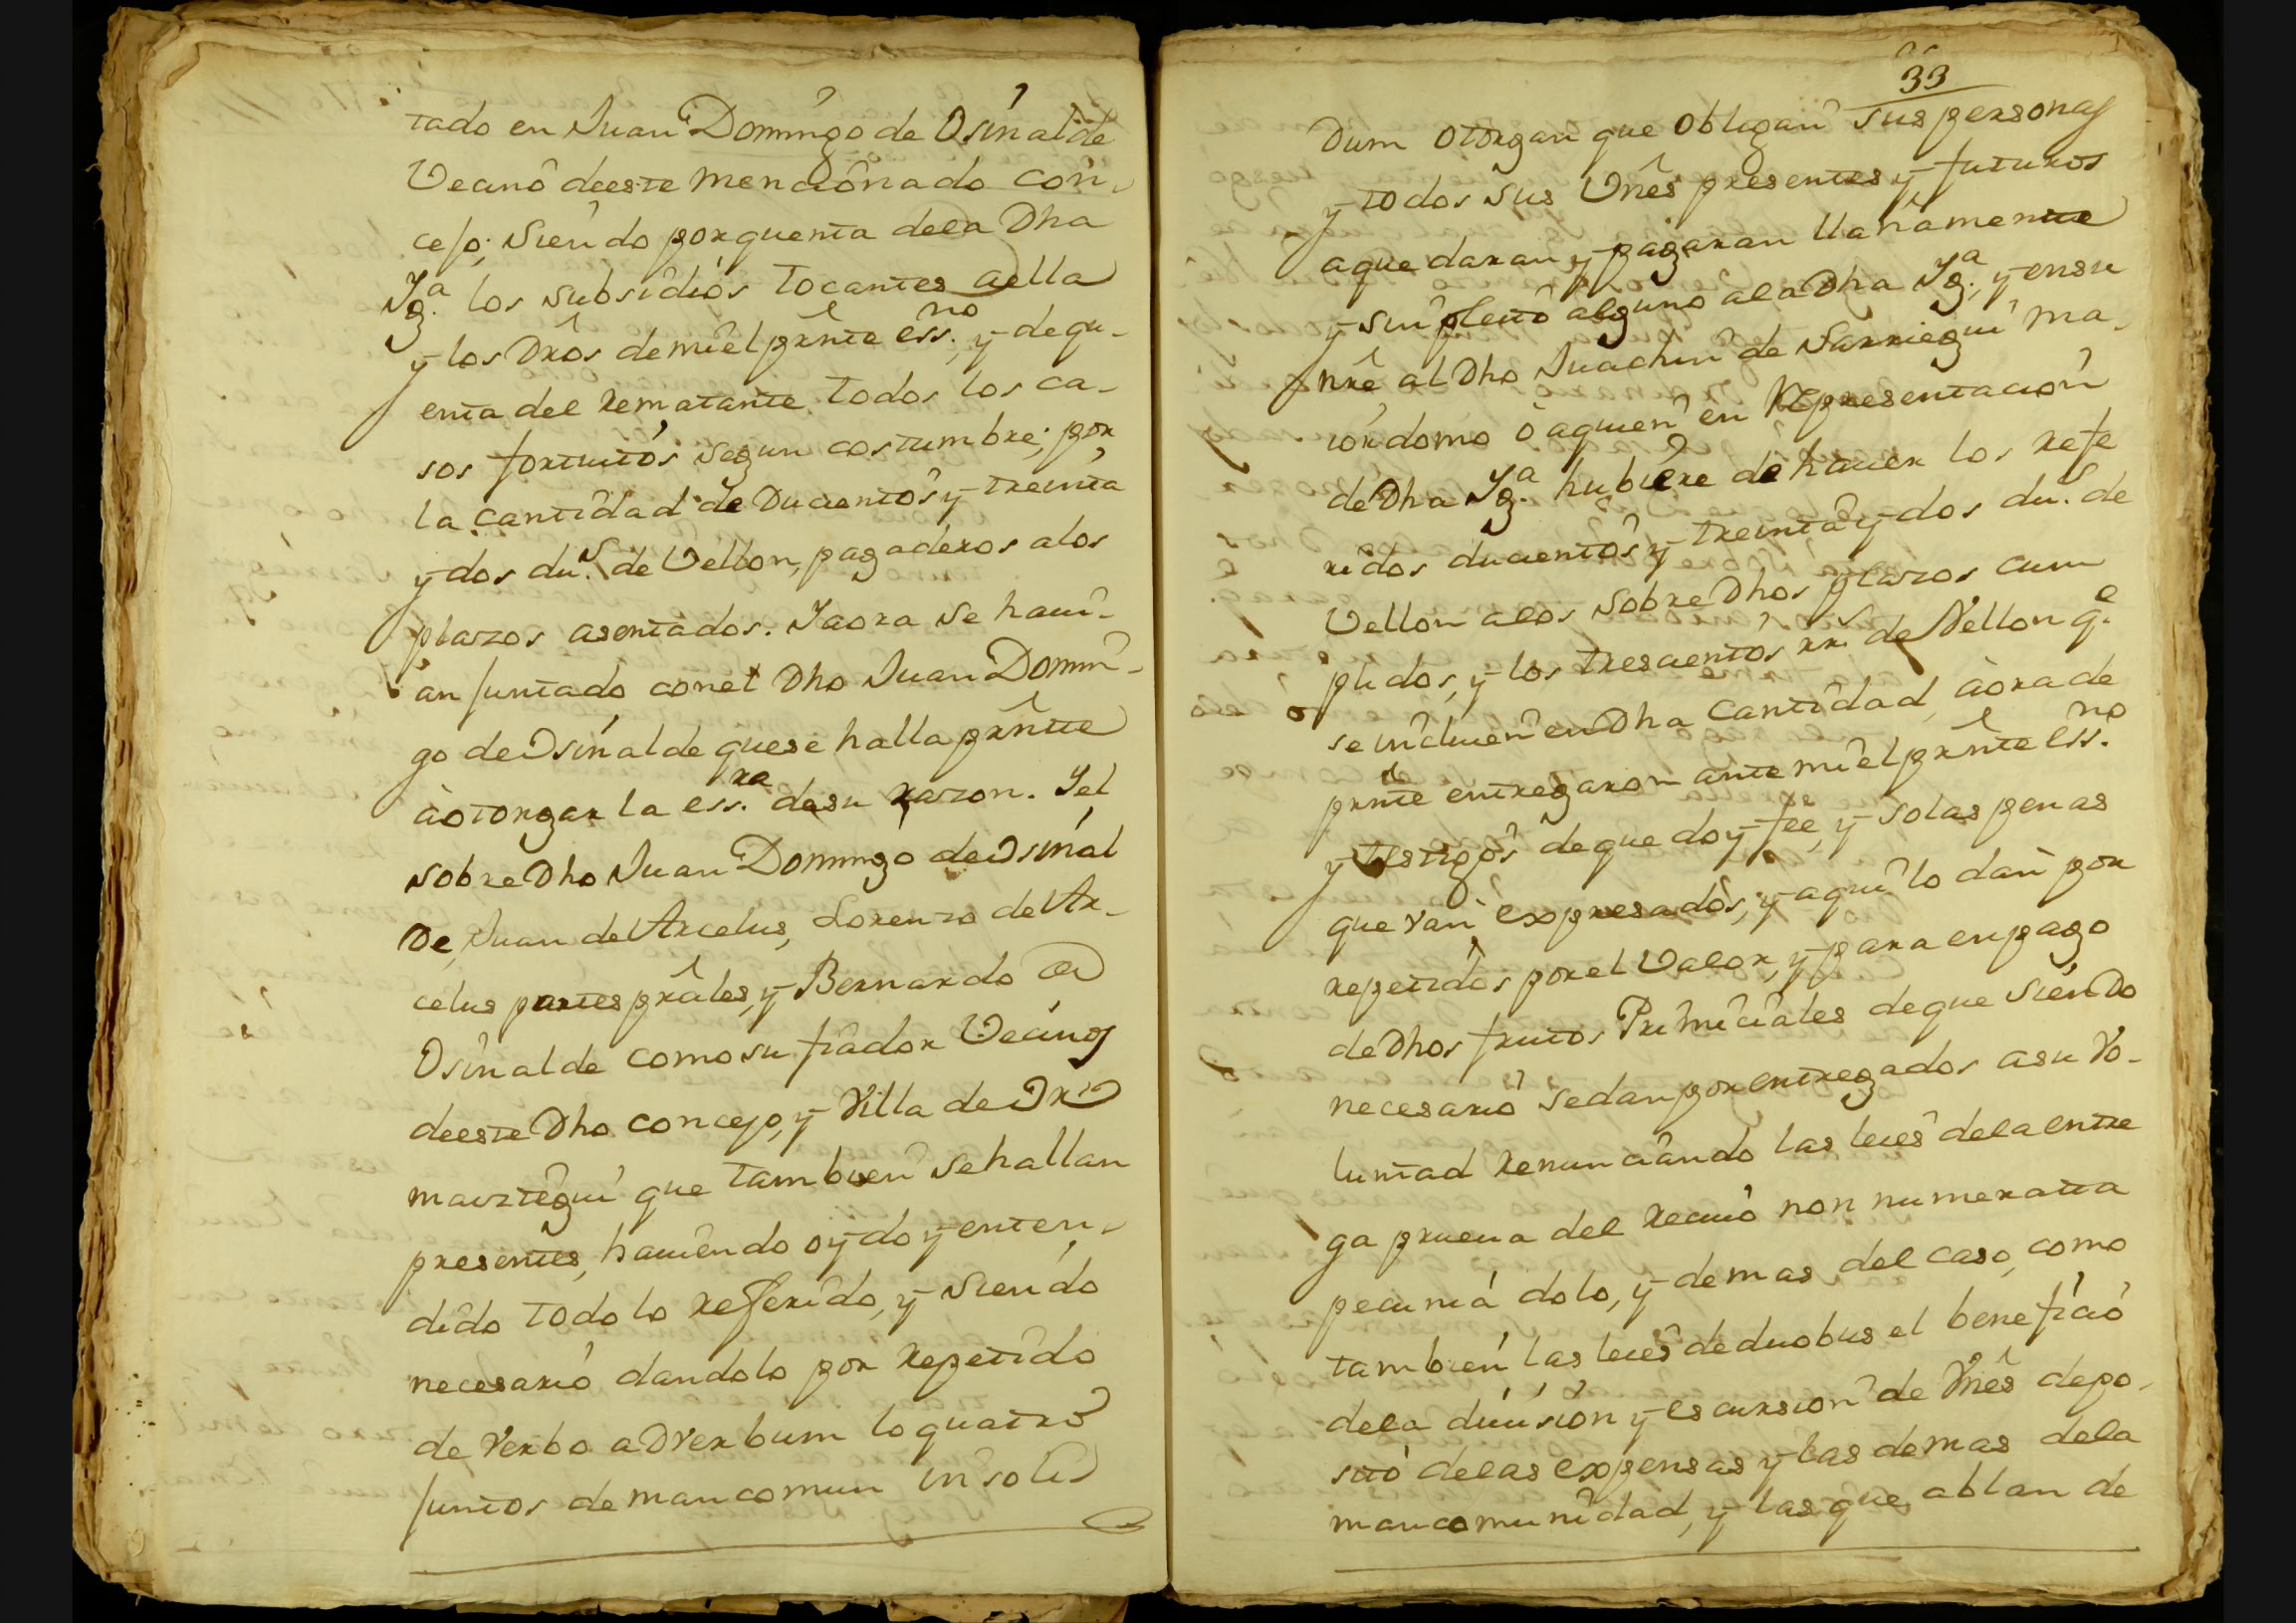 tado en Juan Domingo de Osinalde
Vecino deeste mencionado con-
cejo; siendo porquenta dela Dha
Yg.ª los subsidios tocantes aella
y los Dros demi el prnte ess.no, y dequ-
enta del Rematante todos los ca-
sos fortuitos segun costumbre; por
la cantidad de Ducientos y treinta
y dos du.s de Vellon, pagaderos alos
plazos asentados. Yaora se havi-
an juntado conel Dho Juan Domin-
go de Osinalde quese halla prnte
à otorgar la ess.ra desu razon. Yel
sobre Dho Juan Domingo de Osinal
De, Juan de Arcelus, Lorenzo de Ar-
celus partes prâles, y Bernardo de
Osinalde como su fiador Vecinos
deeste Dho concejo, y Villa de Or
maiztegui que tambien se hallan
presentes, haviendo oydo y enten-
dido todo lo refferido, y siendo
necesario dandolo por Repetido
de Verbo adVerbum lo quatro
juntos de mancomun in solid
33
Dum otorgan que obligan sus personas
y todos sus Vnês presentes y futuros
aque daran y pagaran llanamente
y sin pleito alguno ala Dha Yg.ª, y ensu
nrê al Dho Juachin de Sarriegui ma-
iordomo ò aquien en Representacion
de Dha Yg.ª hubiere de haver los refe
ridos ducientos y treinta y dos du.s de
Vellon alos sobre Dhos plazos cum
plidos, y los trescientos rr.s de Vellon q.e
se incluien en Dha cantidad, àora de
prnte entregaron ante mi el prnte ess.no
y testigos de que doy fee, y solas penas
que van expresados, y aqui lo dan por
repetidos por el Valor, y para en pago
de Dhos frutos Primiciales de que siendo
necesario se dan por entregados asu Vo-
luntad Renunciando las leies dela entre
ga prueva del Recivo non numerata
pecunia dolo, y demas del caso, como
tambien las leies de duobus el beneficio
dela division y escursion de Vnês depo-
sito delas expensas y las demas dela
mancomunidad, y las que ablan de